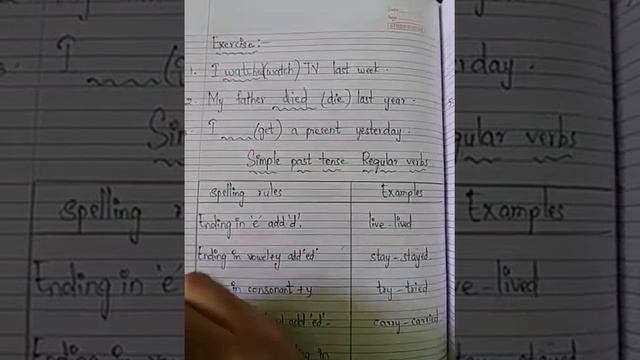 Exercise:-
1. I watched (watch) TV last week.
2. My father died (die) last year.
I ____ (get) a present yesterday.
Simple past tense Regular verbs
Spelling rules Examples
Ending in 'e' add 'd'. live - lived
Ending in vowel+y add 'ed' stay - stayed
in consonant + y try - tried
add 'ed'. carry - carried
in